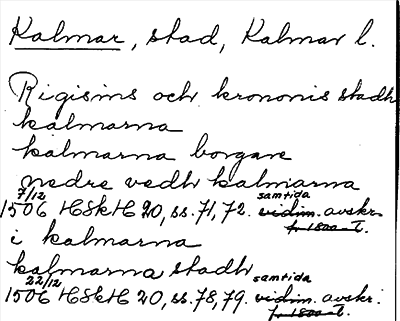 Kalmar, stad, Kalmar l.
Rigisins och krononis stadh
kalmarna
kalmarna borgare
nedre vedh kalmarna
7/12 samtida
1506 HSkH 20, ss. 71, 72. vidim. avskr.
fr. 1800-t.
i kalmarna
kalmarna stadh
22/12 samtida
1506 HSkH 20, ss. 78, 79. vidim. avskr.
fr. 1800-t.